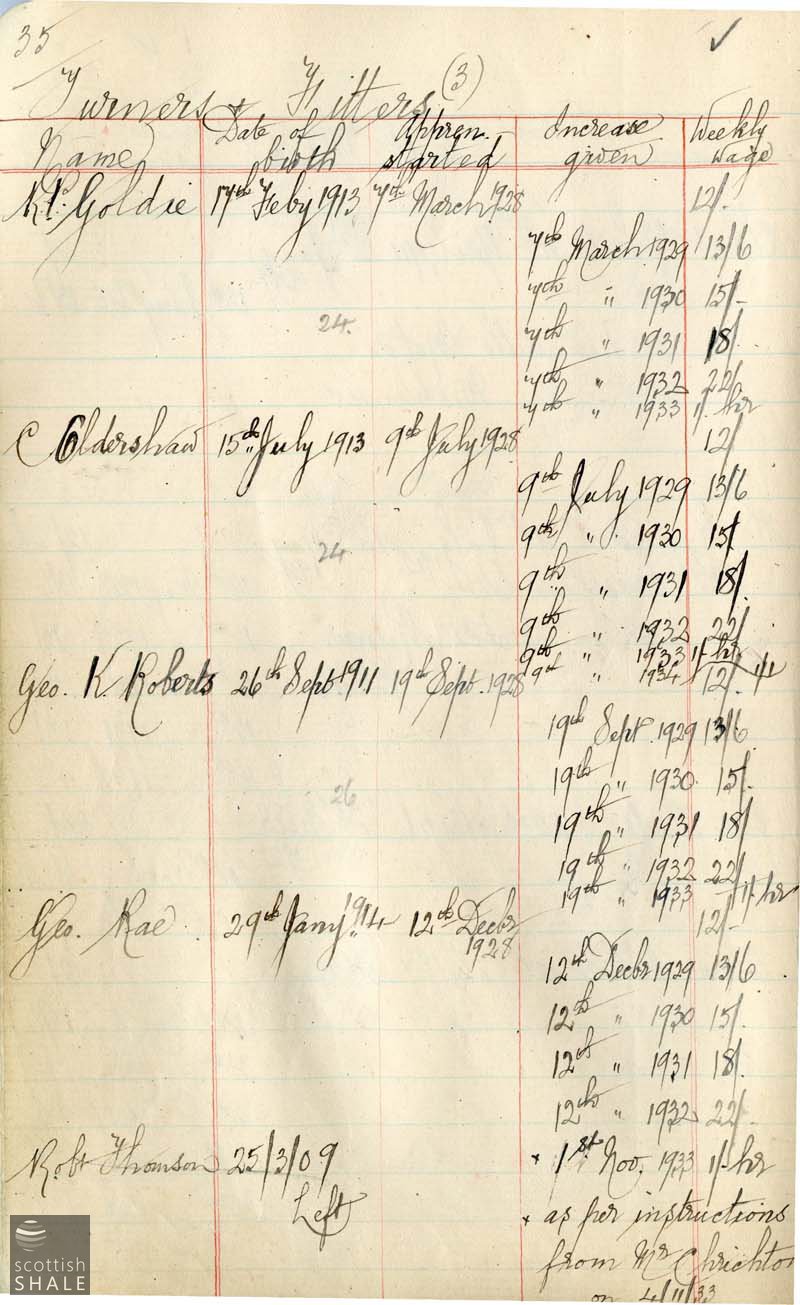 35 ✓
Turners & Fitters (3)
Name Date of birth Appren. started Increase given Weekly wage
R.P. Goldie 17th Feby 1913 7th March 1928 12/.
7th March 1929 13/6
7th " 1930 15/-
24. 7th " 1931 18/.
7th " 1932 22/.
7th " 1933 1/. hr
C Eldershaw 15th July 1913 9th July 1928 12/
9th July 1929 13/6
9th " 1930 15/.
24 9th " 1931 18/.
9th " 1932 22/.
9th " 1933 1/ hr
9th " 1934
Geo. K. Roberts 26th Sept 1911 19th Sept. 1928 12/.
19th Sept. 1929 13/6
19th " 1930 15/.
26 19th " 1931 18/
19th " 1932 22/.
19th " 1933 1/. hr
Geo. Rae. 29th Jany 1914 12th Decbr 1928 12/-
12th Decbr 1929 13/6
12th " 1930 15/.
12th " 1931 18/.
12th " 1932 22/.
Robt Thomson 25/3/09 * 1st Nov. 1933 1/- hr
Left * as per instructions
from Mr Chrichton
on 4/11/33
scottish
SHALE